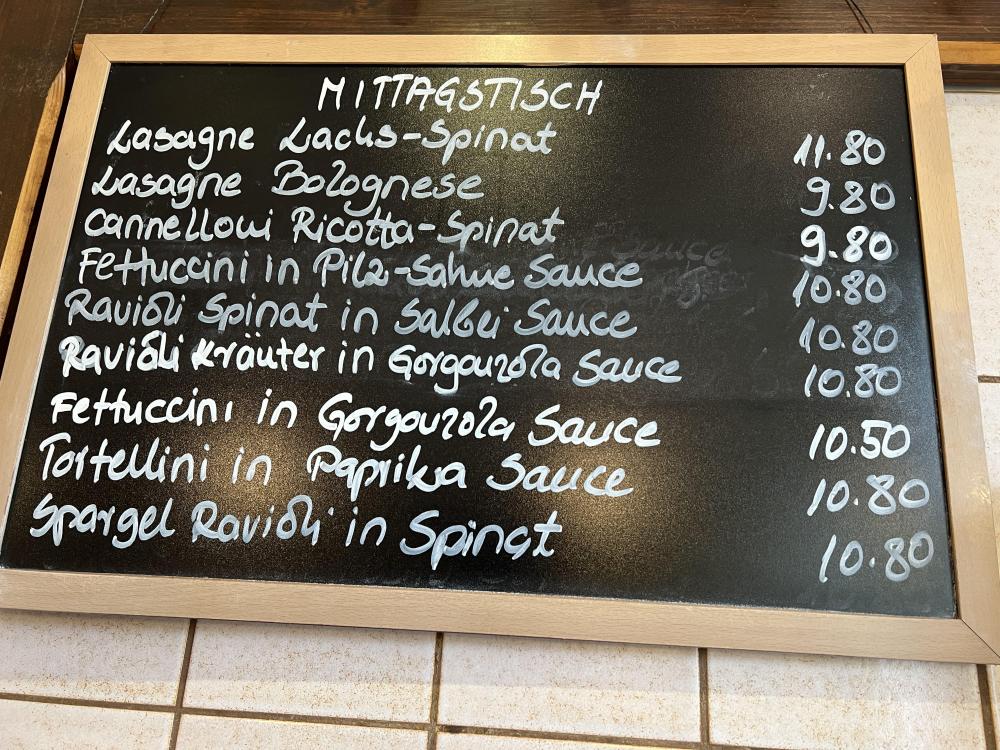 MITTAGSTISCH
Lasagne Lachs-Spinat 11.80
Lasagne Bolognese 9.80
Cannelloni Ricotta-Spinat 9.80
Fettuccini in Pilz-Sahne Sauce 10.80
Ravioli Spinat in Salbei Sauce 10.80
Ravioli Kräuter in Gorgonzola Sauce 10.80
Fettuccini in Gorgonzola Sauce 10.50
Tortellini in Paprika Sauce 10.80
Spargel Ravioli in Spinat 10.80